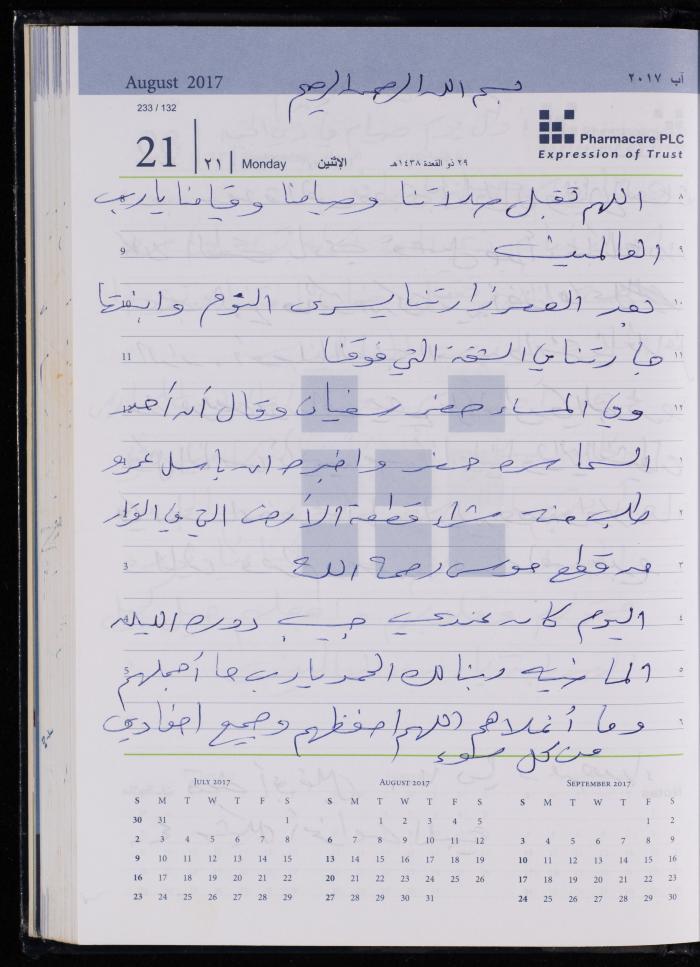 August 2017
بسم الله الرحمن الرحيم
آب ٢٠١٧
233 / 132
21 | ٢١ | Monday الإثنين ٢٩ ذو القعدة ١٤٣٨هـ
Pharmacare PLC
Expression of Trust
٨ اللهم تقبل صلاتنا وصيامنا وقيامنا يارب
9 ٩ العالمين
١٠ بعد العصر زارتنا يسرى اليوم وابنتها
11 ١١ جارتنا في الشقة التي فوقنا
١٢ وفي المساء حضر سفيان وقال أن أحمد
١ حضر واخبره ان باسل عمرو
٢ طلب منه شراء قطعة الأرض التي في
3 ٣ من قطع موسى رحمه الله
٤ اليوم كان عندي حبيب دوره الليله
5 ٥ الماضيه ربنا لك الحمد يارب ما أجملهم
٦ وما أغلاهم اللهم احفظهم وجميع احفادي
من كل سوء
JULY 2017
S M T W T F S
30 31 1
2 3 4 5 6 7 8
9 10 11 12 13 14 15
16 17 18 19 20 21 22
23 24 25 26 27 28 29
AUGUST 2017
S M T W T F S
1 2 3 4 5
6 7 8 9 10 11 12
13 14 15 16 17 18 19
20 21 22 23 24 25 26
27 28 29 30 31
SEPTEMBER 2017
S M T W T F S
1 2
3 4 5 6 7 8 9
10 11 12 13 14 15 16
17 18 19 20 21 22 23
24 25 26 27 28 29 30